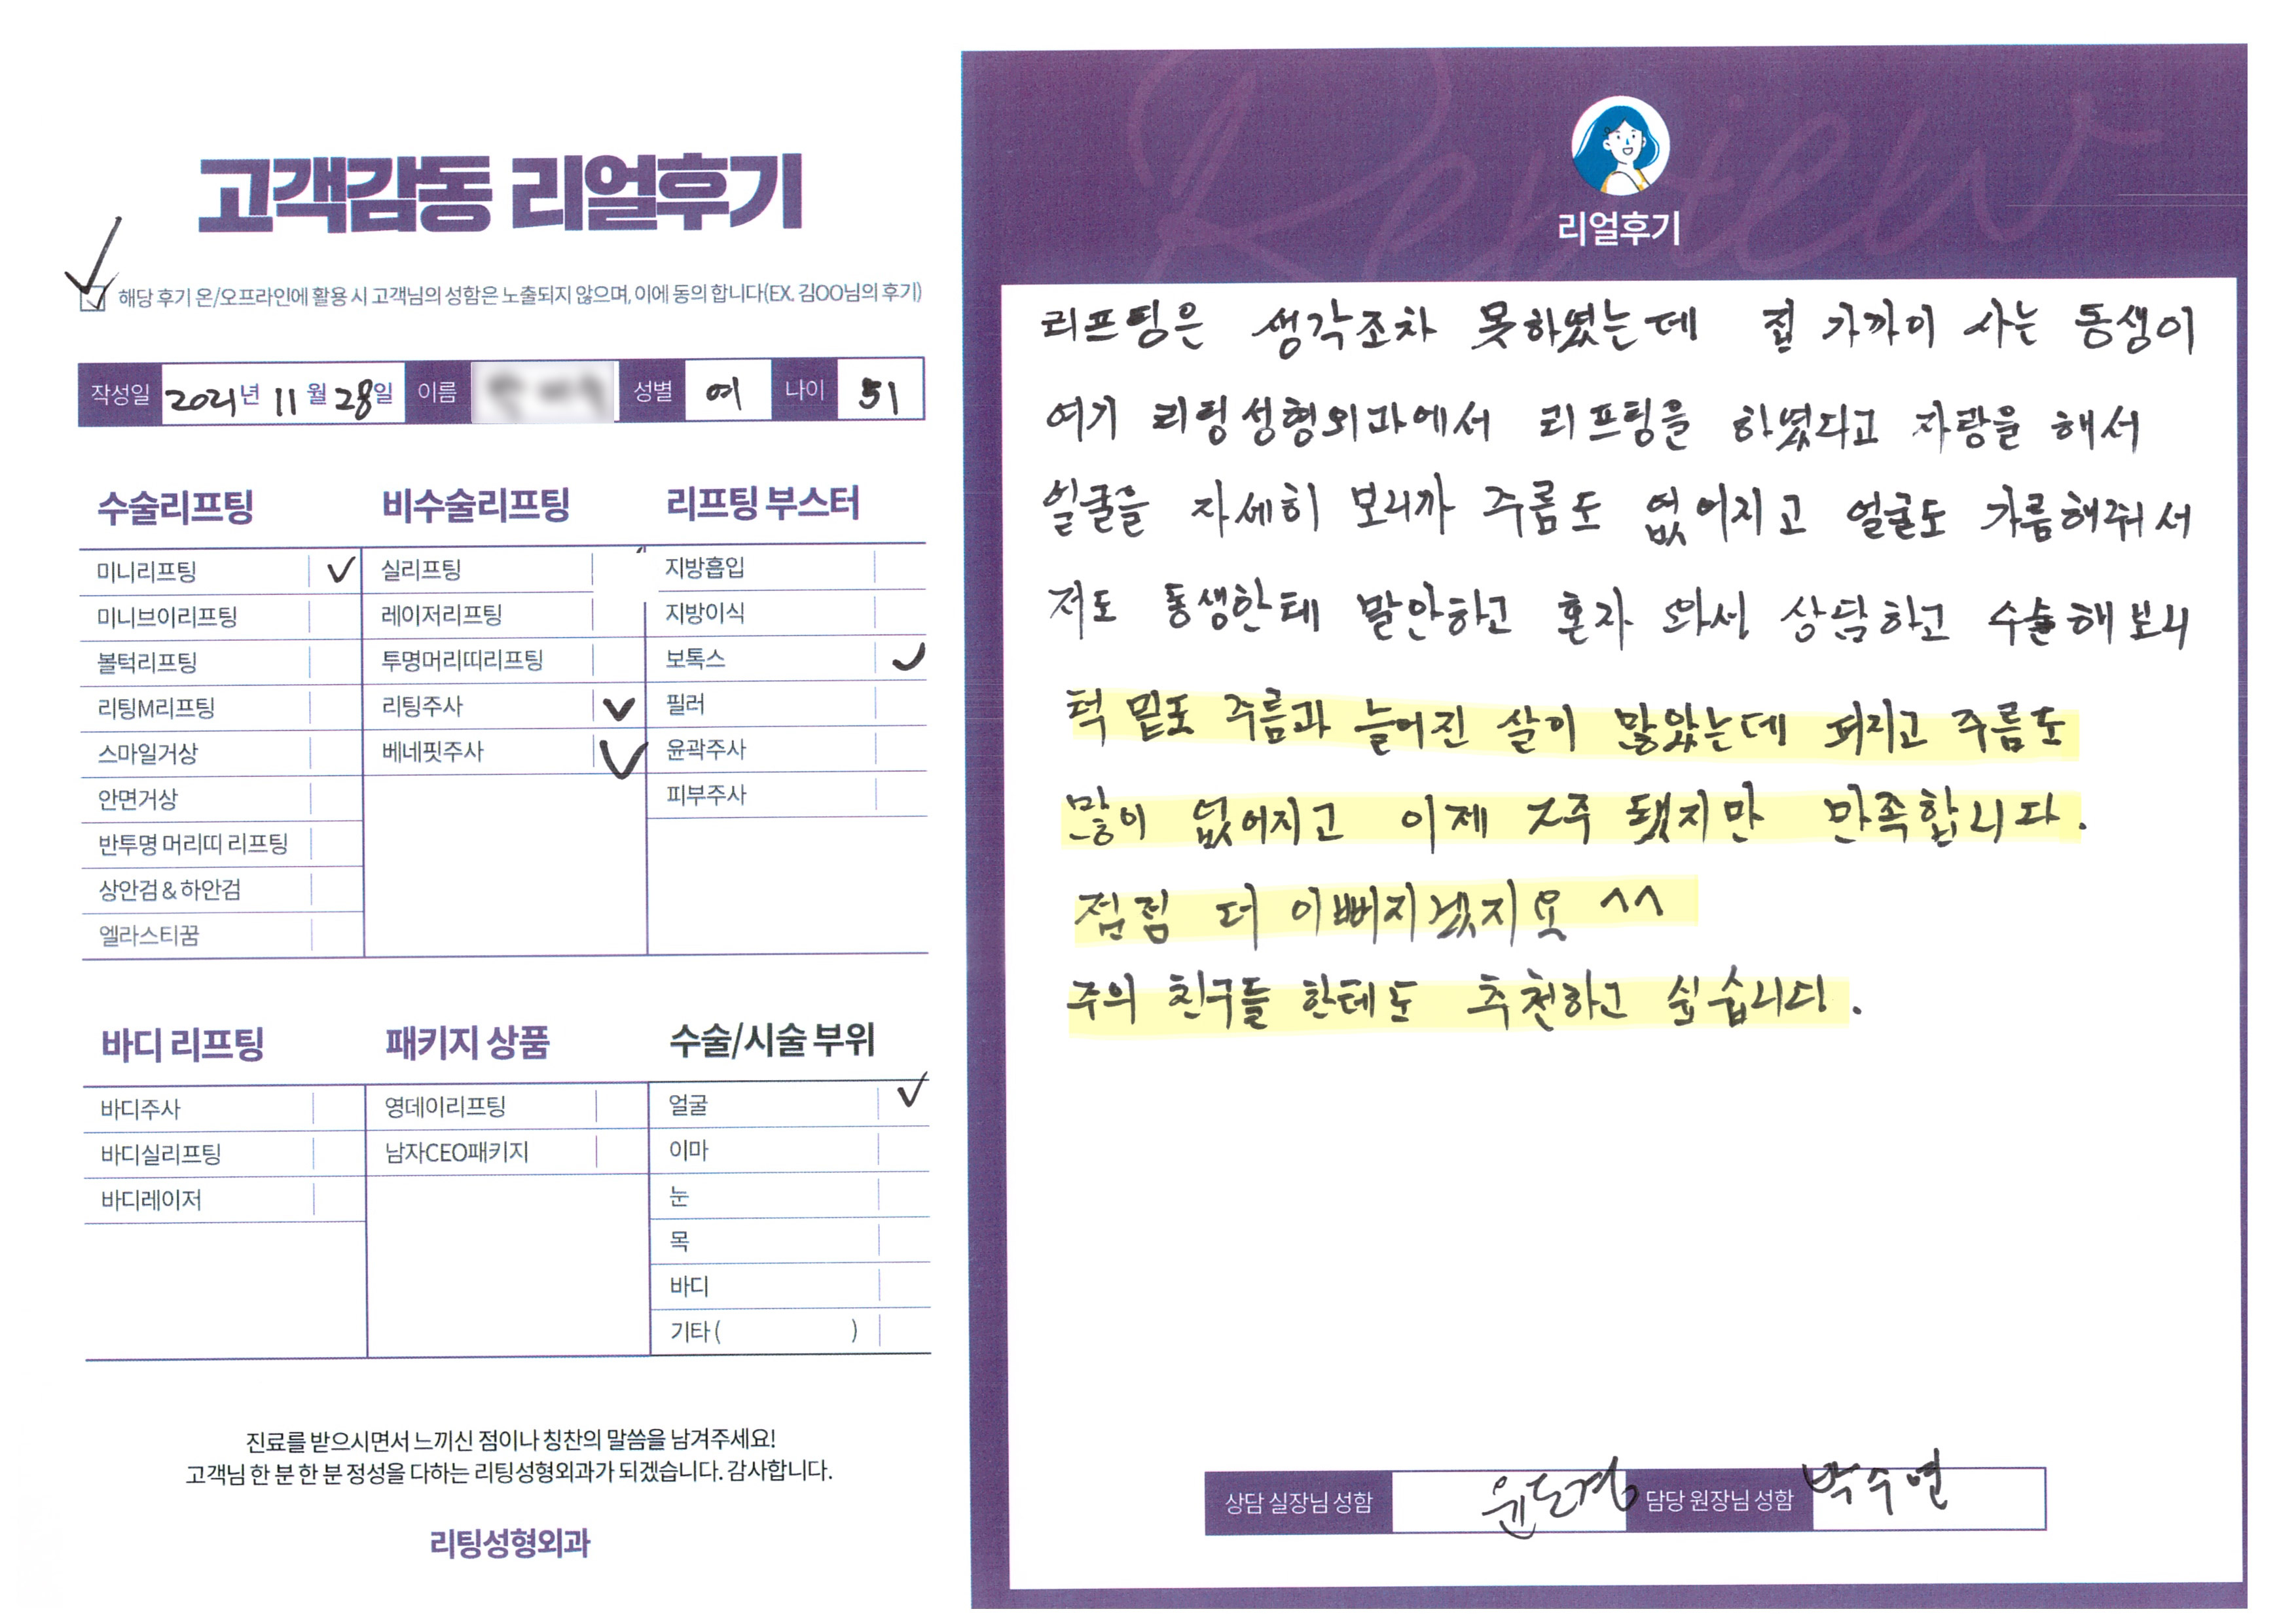 고객감동 리얼후기
해당 후기 온/오프라인에 활용 시 고객님의 성함은 노출되지 않으며, 이에 동의 합니다(EX. 김OO님의 후기)
작성일 2021년 11월 28일 이름 성별 여 나이 51
수술리프팅
미니리프팅
미니브이리프팅
볼턱리프팅
리팅M리프팅
스마일거상
안면거상
반투명 머리띠 리프팅
상안검 & 하안검
엘라스티꿈
비수술리프팅
실리프팅
레이저리프팅
투명머리띠리프팅
리팅주사
베네핏주사
리프팅 부스터
지방흡입
지방이식
보톡스
필러
윤곽주사
피부주사
바디 리프팅
바디주사
바디실리프팅
바디레이저
패키지 상품
영데이리프팅
남자CEO패키지
수술/시술 부위
얼굴
이마
눈
목
바디
기타 ( )
진료를 받으시면서 느끼신 점이나 칭찬의 말씀을 남겨주세요!
고객님 한 분 한 분 정성을 다하는 리팅성형외과가 되겠습니다. 감사합니다.
리팅성형외과
Review
리얼후기
리프팅은 생각조차 못하였는데 집 가까이 사는 동생이
여기 리팅성형외과에서 리프팅을 하였다고 자랑을 해서
얼굴을 자세히 보니까 주름도 없어지고 얼굴도 가름해줘서
저도 동생한테 말안하고 혼자 와서 상담하고 수술해보니
턱 밑도 주름과 늘어진 살이 많았는데 펴지고 주름도
많이 없어지고 이제 2주 됐지만 만족합니다.
점점 더 이뻐지겠지요 ^^
주의 친구들 한테도 추천하고 싶습니다.
상담 실장님 성함 윤도경 담당 원장님 성함 박수연